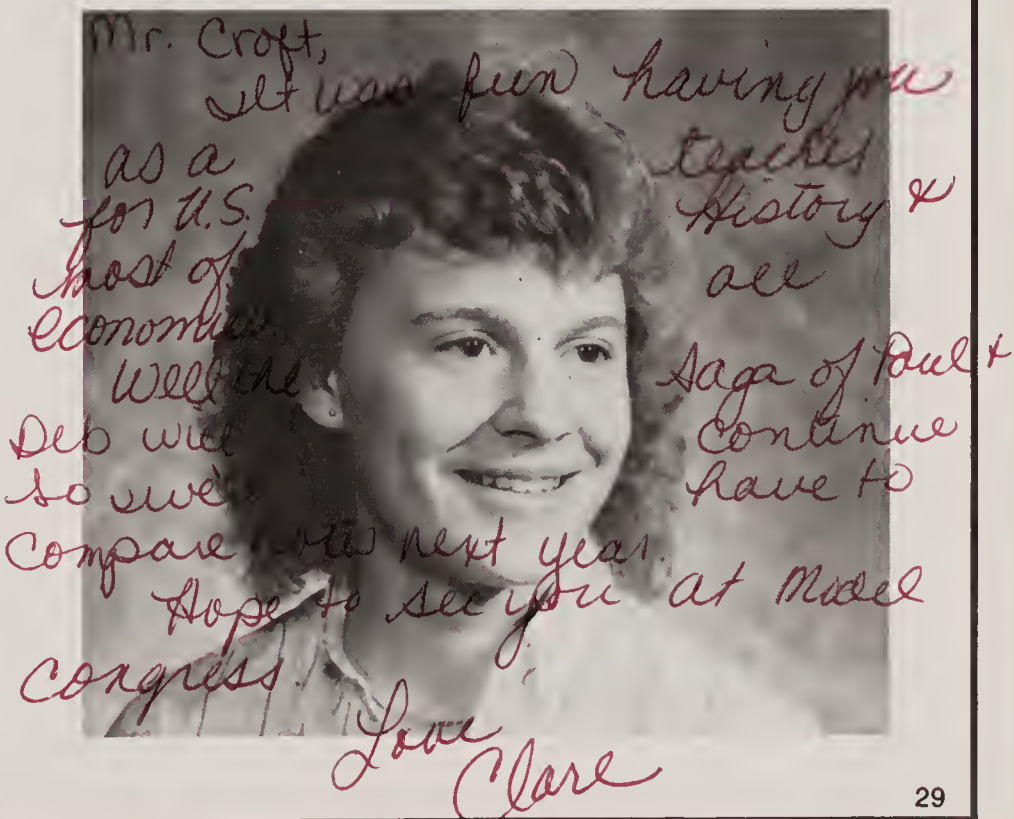 Mr. Croft,
It was fun having you
as a teacher
for U.S. History &
most of all
economics.
Well the saga of Paul &
Deb will continue
so we'll have to
compare next year.
Hope to see you at Model
Congress.
Love
Clare
29